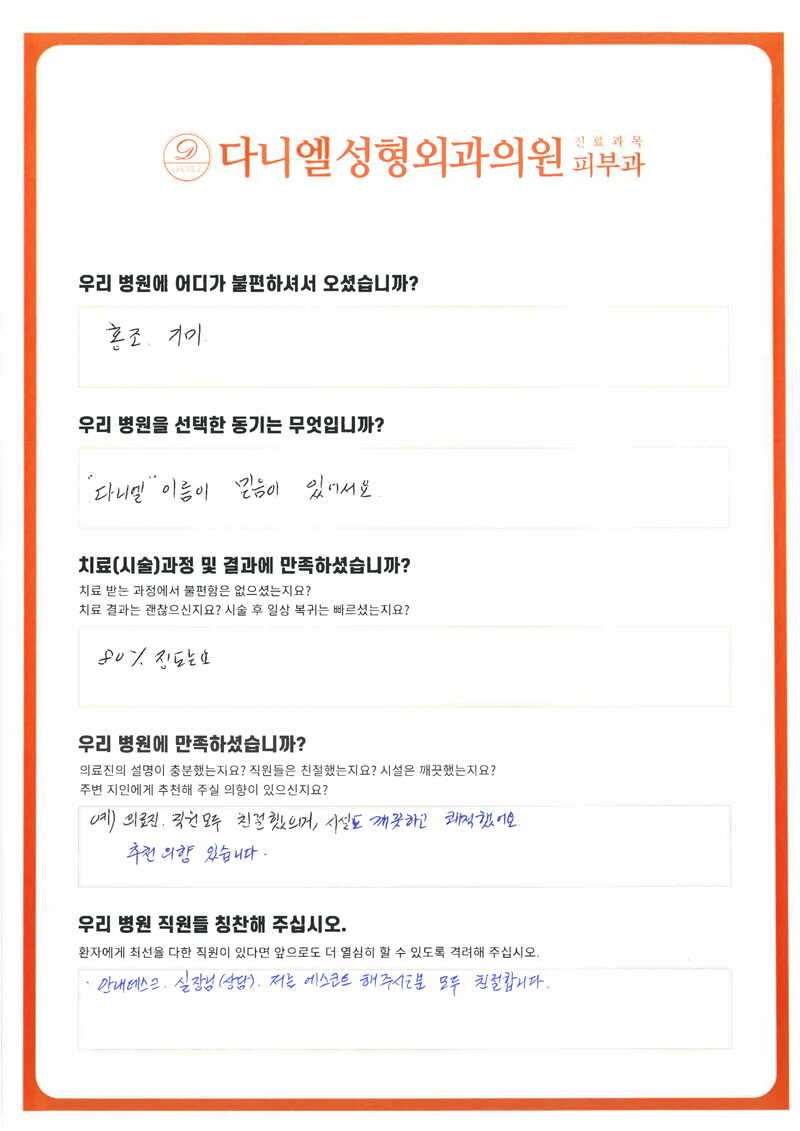 다니엘성형외과의원 진료과목
피부과
우리 병원에 어디가 불편하셔서 오셨습니까?
홍조. 기미.
우리 병원을 선택한 동기는 무엇입니까?
"다니엘" 이름이 믿음이 있어서요.
치료(시술)과정 및 결과에 만족하셨습니까?
치료 받는 과정에서 불편함은 없으셨는지요?
치료 결과는 괜찮으신지요? 시술 후 일상 복귀는 빠르셨는지요?
80% 정도는요
우리 병원에 만족하셨습니까?
의료진의 설명이 충분했는지요? 직원들은 친절했는지요? 시설은 깨끗했는지요?
주변 지인에게 추천해 주실 의향이 있으신지요?
예) 의료진. 직원모두 친절했으며, 시설도 깨끗하고 쾌적했어요
추천 의향 있습니다.
우리 병원 직원들 칭찬해 주십시오.
환자에게 최선을 다한 직원이 있다면 앞으로도 더 열심히 할 수 있도록 격려해 주십시오.
· 안내데스크. 실장님(상담). 저는 에스코트 해주시는분 모두 친절합니다.